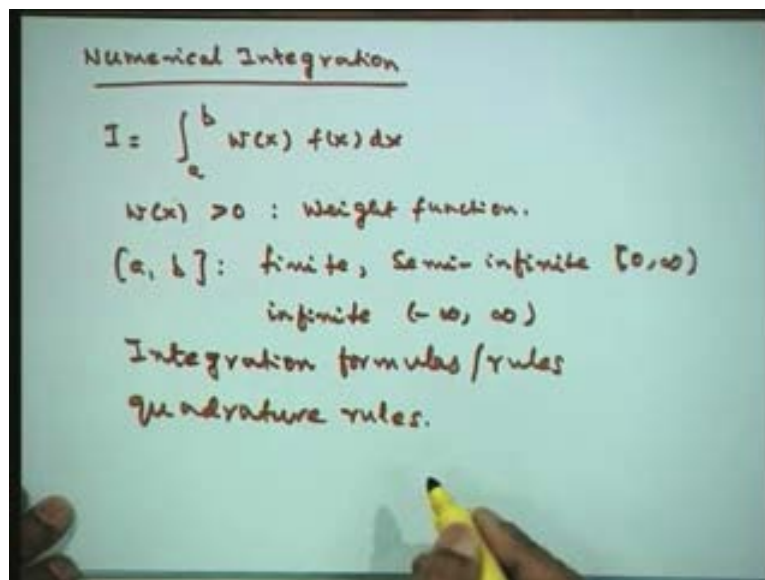 Numerical Integration
I = ∫_a^b w(x) f(x) dx
w(x) > 0 : Weight function.
[a, b] : finite, Semi-infinite [0,∞)
infinite (-∞, ∞)
Integration formulas/rules
quadrature rules.